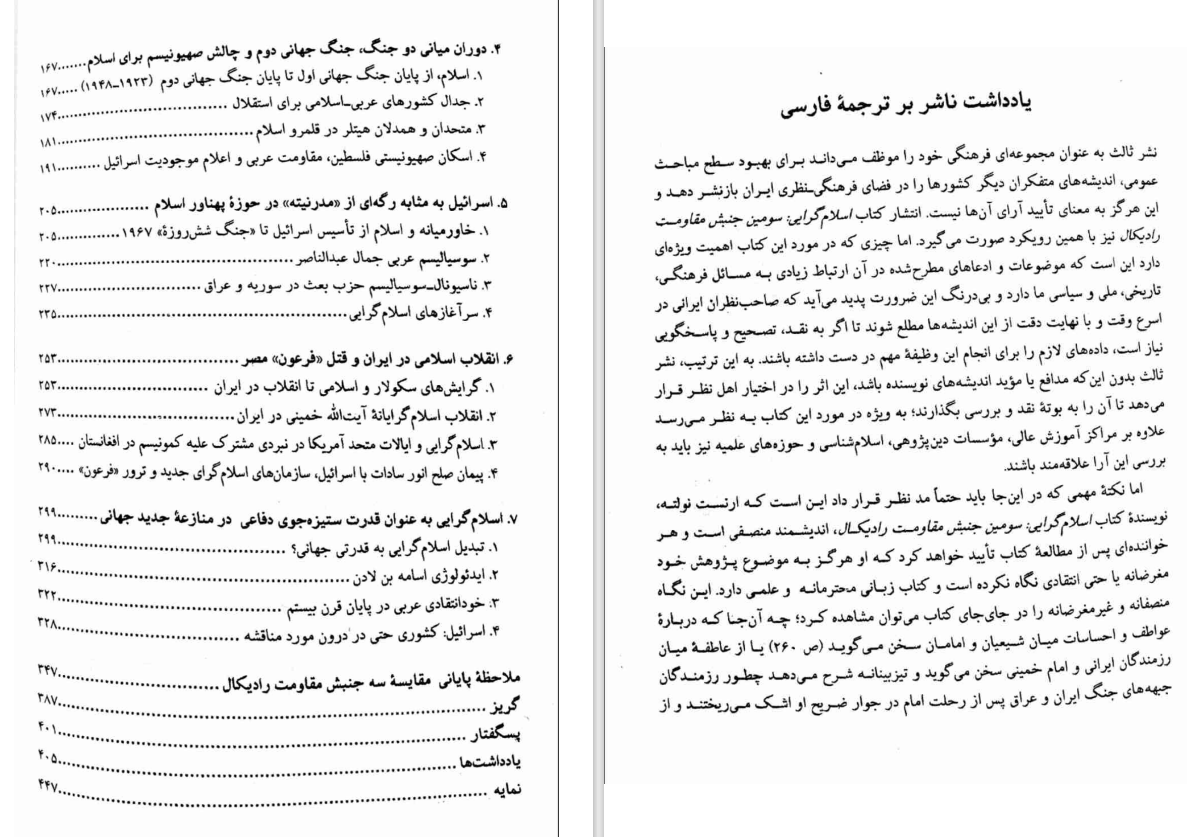 یادداشت ناشر بر ترجمۀ فارسی
نشر ثالث به عنوان مجموعه‌ای فرهنگی خود را موظف می‌داند برای بهبود سطح مباحث
عمومی، اندیشه‌های متفکران دیگر کشورها را در فضای فرهنگی‌ـ‌نظری ایران بازنشر دهد و
این هرگز به معنای تأیید آرای آن‌ها نیست. انتشار کتاب اسلام‌گرایی: سومین جنبش مقاومت
رادیکال نیز با همین رویکرد صورت می‌گیرد. اما چیزی که در مورد این کتاب اهمیت ویژه‌ای
دارد این است که موضوعات و ادعاهای مطرح‌شده در آن ارتباط زیادی به مسائل فرهنگی،
تاریخی، ملی و سیاسی ما دارد و بی‌درنگ این ضرورت پدید می‌آید که صاحب‌نظران ایرانی در
اسرع وقت و با نهایت دقت از این اندیشه‌ها مطلع شوند تا اگر به نقد، تصحیح و پاسخگویی
نیاز است، داده‌های لازم را برای انجام این وظیفۀ مهم در دست داشته باشند. به این ترتیب، نشر
ثالث بدون این‌که مدافع یا مؤید اندیشه‌های نویسنده باشد، این اثر را در اختیار اهل نظر قرار
می‌دهد تا آن را به بوتۀ نقد و بررسی بگذارند؛ به ویژه در مورد این کتاب به نظر می‌رسد
علاوه بر مراکز آموزش عالی، مؤسسات دین‌پژوهی، اسلام‌شناسی و حوزه‌های علمیه نیز باید به
بررسی این آرا علاقه‌مند باشند.
اما نکتۀ مهمی که در این‌جا باید حتماً مد نظر قرار داد این است که ارنست نولته،
نویسندۀ کتاب اسلام‌گرایی: سومین جنبش مقاومت رادیکال، اندیشمند منصفی است و هر
خواننده‌ای پس از مطالعۀ کتاب تأیید خواهد کرد که او هرگز به موضوع پژوهش خود
مغرضانه یا حتی انتقادی نگاه نکرده است و کتاب زبانی محترمانه و علمی دارد. این نگاه
منصفانه و غیرمغرضانه را در جای‌جای کتاب می‌توان مشاهده کرد؛ چه آن‌جا که دربارۀ
عواطف و احساسات میان شیعیان و امامان سخن می‌گوید (ص ۲۶۰) یا از عاطفۀ میان
رزمندگان ایرانی و امام خمینی سخن می‌گوید و تیزبینانه شرح می‌دهد چطور رزمندگان
جبهه‌های جنگ ایران و عراق پس از رحلت امام در جوار ضریح او اشک می‌ریختند و از
۴. دوران میانی دو جنگ، جنگ جهانی دوم و چالش صهیونیسم برای اسلام.......۱۶۷
۱. اسلام، از پایان جنگ جهانی اول تا پایان جنگ جهانی دوم (۱۹۲۳ـ۱۹۴۸) .....۱۶۷
۲. جدال کشورهای عربی‌ـ‌اسلامی برای استقلال ........................................۱۷۴
۳. متحدان و همدلان هیتلر در قلمرو اسلام .............................................۱۸۱
۴. اسکان صهیونیستی فلسطین، مقاومت عربی و اعلام موجودیت اسرائیل ..........۱۹۱
۵. اسرائیل به مثابه رگه‌ای از «مدرنیته» در حوزۀ پهناور اسلام ....................۲۰۵
۱. خاورمیانه و اسلام از تأسیس اسرائیل تا «جنگ شش‌روزۀ» ۱۹۶۷ ...............۲۰۵
۲. سوسیالیسم عربی جمال عبدالناصر ..................................................۲۲۰
۳. ناسیونال‌ـ‌سوسیالیسم حزب بعث در سوریه و عراق ..............................۲۲۷
۴. سرآغازهای اسلام‌گرایی ............................................................۲۳۵
۶. انقلاب اسلامی در ایران و قتل «فرعون» مصر .....................................۲۵۳
۱. گرایش‌های سکولار و اسلامی تا انقلاب در ایران ................................۲۵۳
۲. انقلاب اسلام‌گرایانۀ آیت‌الله خمینی در ایران ....................................۲۷۳
۳. اسلام‌گرایی و ایالات متحد آمریکا در نبردی مشترک علیه کمونیسم در افغانستان ....۲۸۵
۴. پیمان صلح انور سادات با اسرائیل، سازمان‌های اسلام‌گرای جدید و ترور «فرعون» ....۲۹۰
۷. اسلام‌گرایی به عنوان قدرت ستیزه‌جوی دفاعی در منازعۀ جدید جهانی .........۲۹۹
۱. تبدیل اسلام‌گرایی به قدرتی جهانی؟ ................................................۲۹۹
۲. ایدئولوژی اسامه بن لادن ..........................................................۳۱۶
۳. خودانتقادی عربی در پایان قرن بیستم ..............................................۳۲۲
۴. اسرائیل: کشوری حتی در درون مورد مناقشه .....................................۳۲۸
ملاحظۀ پایانی مقایسۀ سه جنبش مقاومت رادیکال .................................۳۴۷
گریز ..................................................................................۳۸۷
پسگفتار ..............................................................................۴۰۱
یادداشت‌ها ...........................................................................۴۰۵
نمایه ..................................................................................۴۴۷